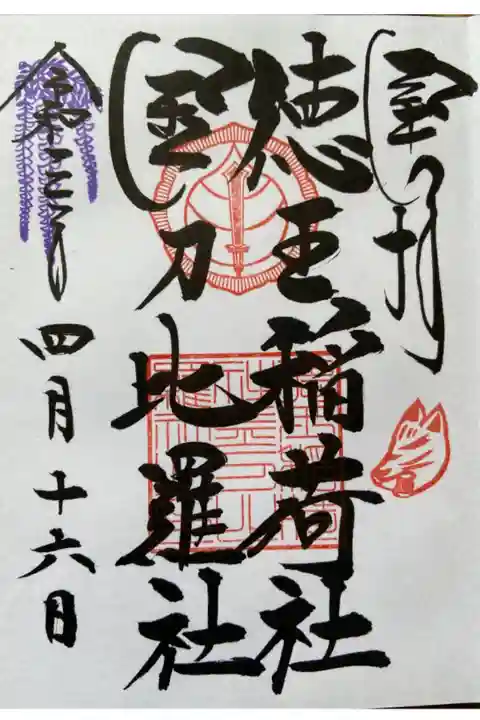 拝
徳王稲荷社
金刀比羅社
令和三年四月十六日